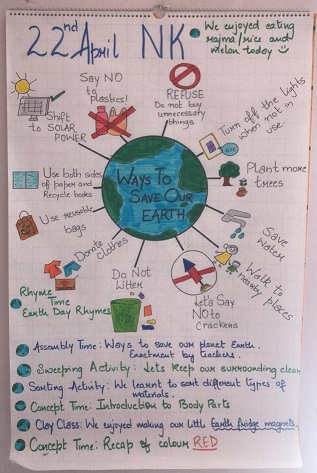 22nd April NK
We enjoyed eating
rajma/rice and
melon today
Say NO
to
plastics!
REFUSE
Do not buy
unnecessary
things
Shift
to SOLAR
POWER
Turn off the lights
when not in
use.
Use both sides
of paper and
Recycle books
WAYS TO
SAVE OUR
EARTH
Plant more
trees
Use reusable
bags
Save
Water
Donate clothes
Do Not
Litter
Let's Say
NO to
Crackers
Walk to
nearby places
Rhyme
Time
Earth Day Rhymes
Assembly Time: Ways to save our planet Earth.
Enactment by teachers.
Sweeping Activity: Lets Keep our surrounding clean
Sorting Activity: We learnt to sort different types of
materials.
Concept Time: Introduction to Body Parts
Clay Class: We enjoyed making our little Earth fridge magnets.
Concept Time: Recap of colour RED